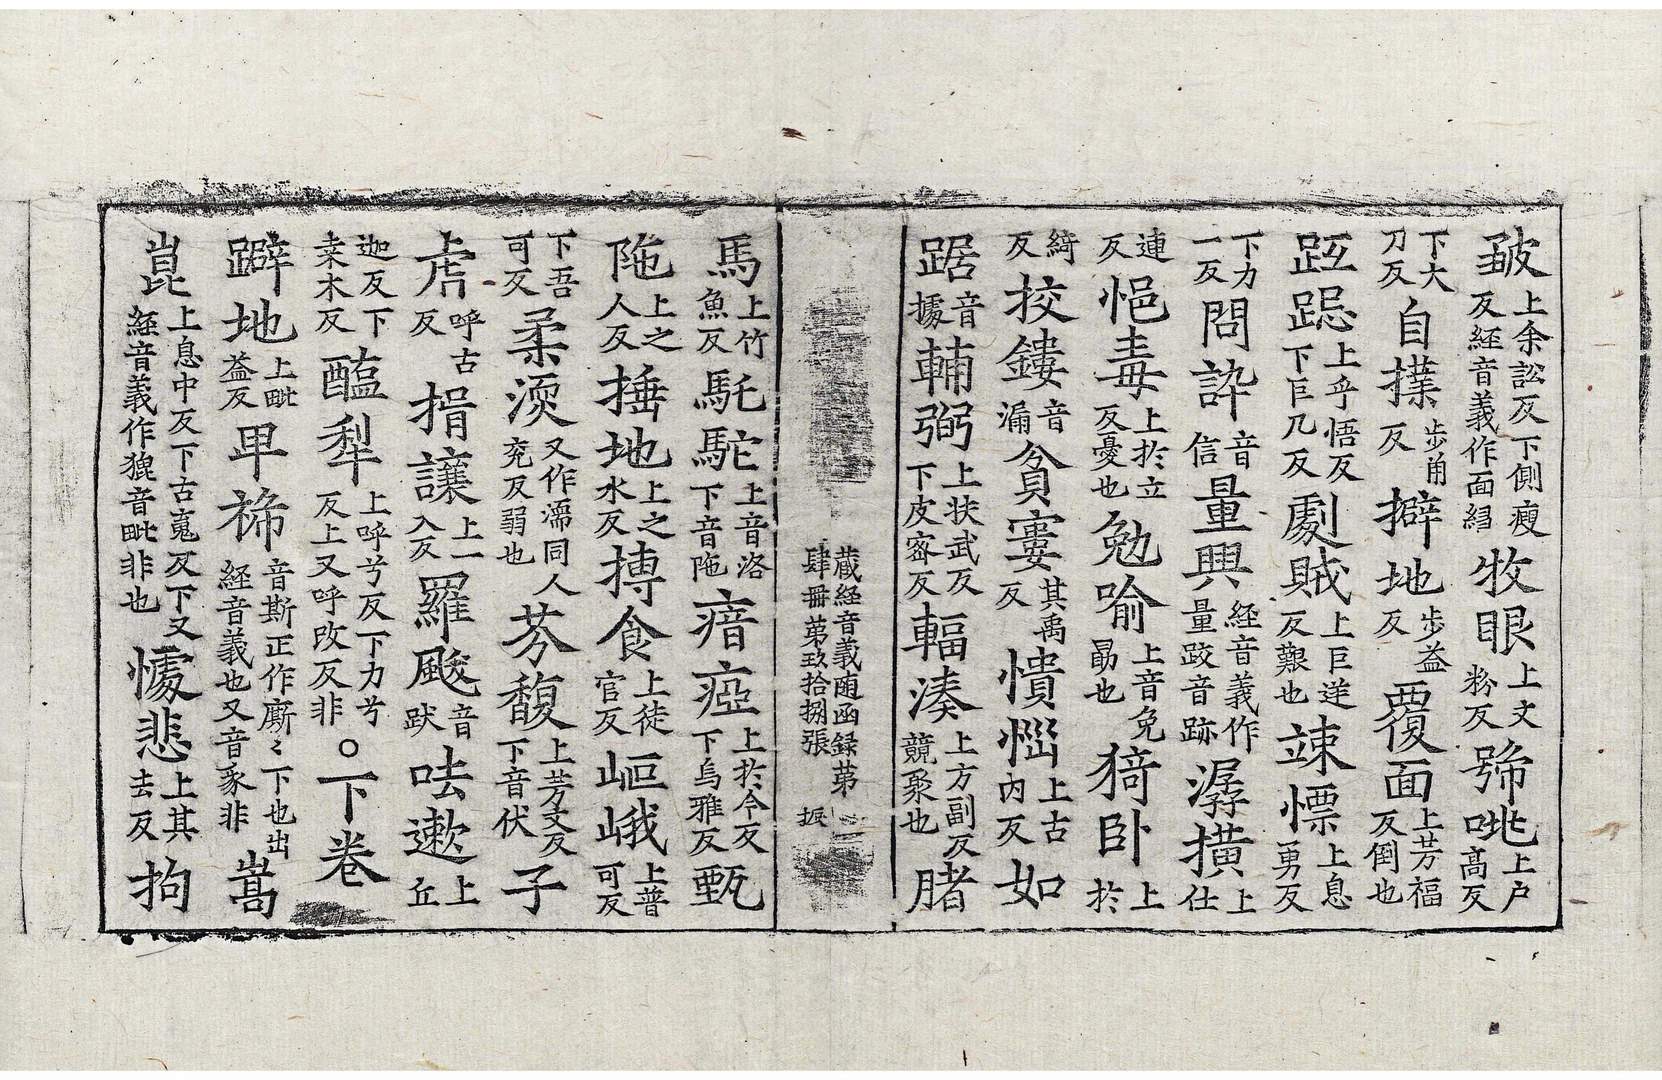 皺上余訟反下側瘦反経音義作面縐牧眼上文粉反號咷上户髙反
下大刀反自撲步角反擗地步益反覆面上芳福反倒也
跽上乎悟反下巨几反劇賊上巨逆反艱也竦慓上息勇反
下力一反問訙音信量興経音義作量跤音跡潺擴上仕
連反悒毒上於立反憂也勉喻上音免勗也猗卧上於
綺反挍鏤音漏貧寠其禹反憒惱上古内反如
踞音據輔弼上扶武反下皮宻反輻湊上方副反競聚也䐗
蔵經音義随函録苐肆冊苐玖拾捌張
馬上竹魚反馲駝上音洛下音陁瘖瘂上於今反下烏雅反甄
陁上之人反捶地上之水反摶食上徒官反岠峨上普可反
下吾可反柔渜又作濡同人兖反弱也芬馥上芳文反下音伏子
虐呼古反揖讓上一入反羅颰音跋呿遬上丘
迦反下桒木反醯犁上呼兮反下力兮反上又呼改反非〇下卷
躃地上毗益反甲褅音斯正作廝〻下也出経音義也又音豕非嵩
崑上息中反下古寬反下又経音義作猑音毗非也懅悲上其去反拘